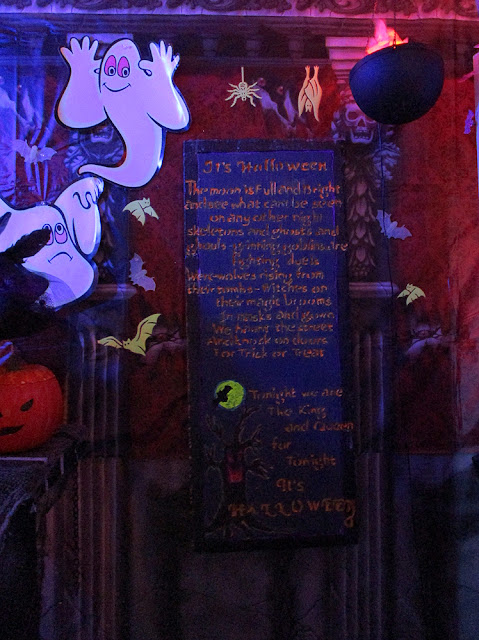 It's Halloween
The moon is Full and Bright
and we see what can't be seen
on any other night
skeletons and ghosts and
ghouls-grinning goblins are
fighting duels
Were-wolves rising from
their tombs-Witches on
their magic brooms
In masks and gown
We haunt the street
And knock on doors
For Trick or Treat
Tonight we are
The King
and Queen
for
Tonight
It's
HALLOWEEN